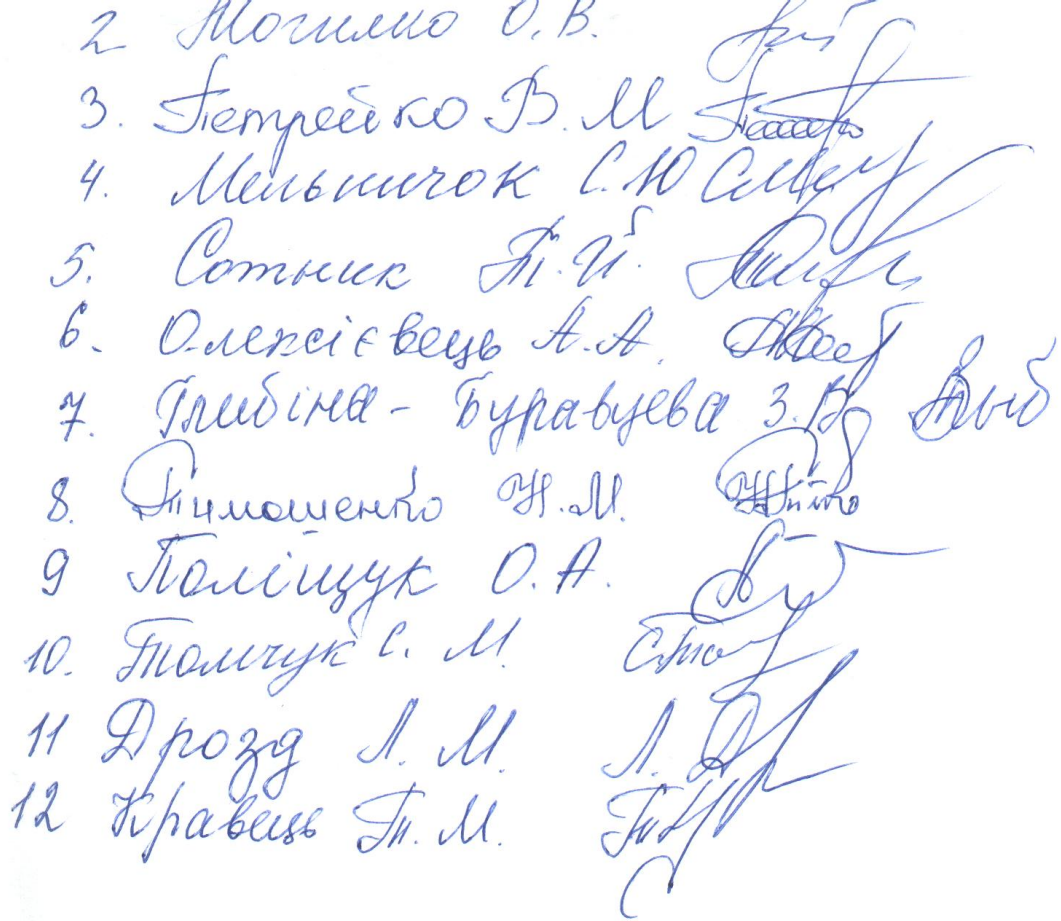 2 Могилко О.В.
3. Петрейко В.М
4. Мельничок С.Ю
5. Сотник Т.Й.
6. Олексієвець А.А.
7. Глибіна-Буравцева З.В.
8. Тимошенко Н.М.
9 Поліщук О.А.
10. Томчук С.М.
11 Дрозд Л.М.
12 Кравець Т.М.